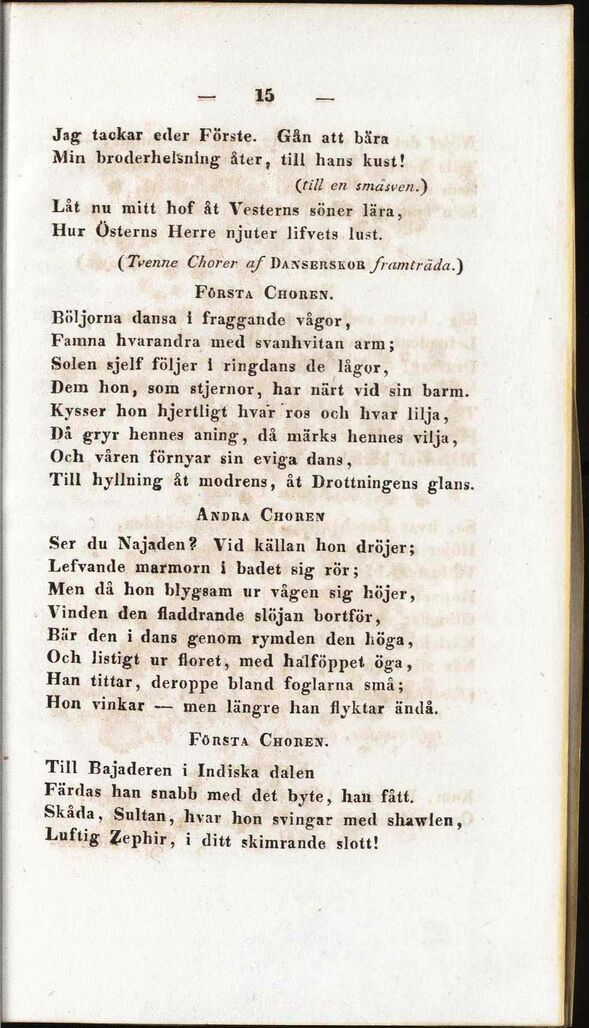 — 15 —
Jag tackar eder Förste. Gån att bära
Min broderhelsning åter, till hans kust!
(till en småsven.)
Låt nu mitt hof åt Vesterns söner lära,
Hur Österns Herre njuter lifvets lust.
(Tvenne Chorer af DANSERSKOR framträda.)
FÖRSTA CHOREN.
Böljorna dansa i fraggande vågor,
Famna hvarandra med svanhvitan arm;
Solen sjelf följer i ringdans de lågor,
Dem hon, som stjernor, har närt vid sin barm.
Kysser hon hjertligt hvar ros och hvar lilja,
Då gryr hennes aning, då märks hennes vilja,
Och våren förnyar sin eviga dans,
Till hyllning åt modrens, åt Drottningens glans.
ANDRA CHOREN
Ser du Najaden? Vid källan hon dröjer;
Lefvande marmorn i badet sig rör;
Men då hon blygsam ur vågen sig höjer,
Vinden den fladdrande slöjan bortför,
Bär den i dans genom rymden den höga,
Och listigt ur floret, med halföppet öga,
Han tittar, deroppe bland foglarna små;
Hon vinkar — men längre han flyktar ändå.
FÖRSTA CHOREN.
Till Bajaderen i Indiska dalen
Färdas han snabb med det byte, han fått.
Skåda, Sultan, hvar hon svingar med shawlen,
Luftig Zephir, i ditt skimrande slott!